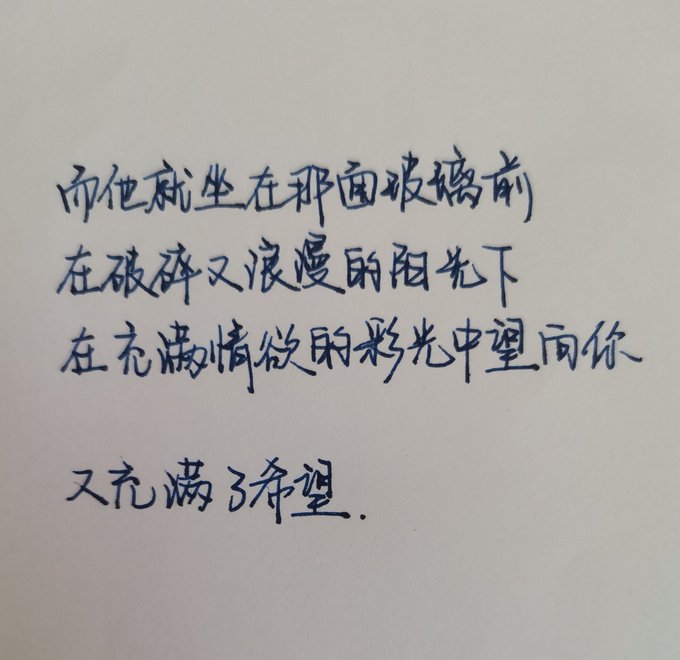 而他就坐在那面玻璃前
在破碎又浪漫的阳光下
在充满情欲的彩光中望向你
又充满了希望.